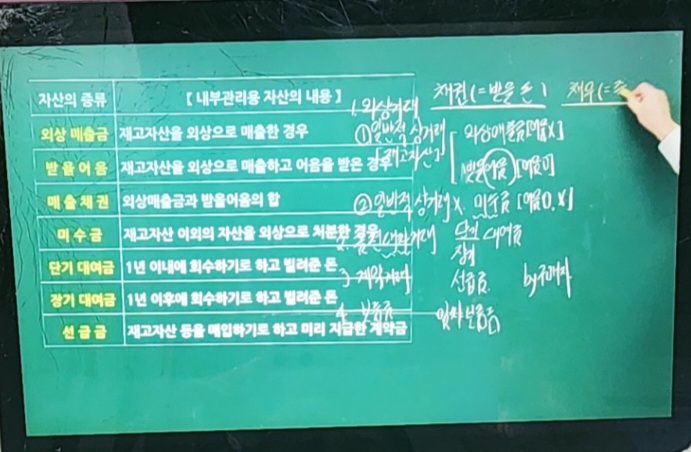 자산의 종류 [ 내부관리용 자산의 내용 ]
외상 매출금 재고자산을 외상으로 매출한 경우
받을어음 재고자산을 외상으로 매출하고 어음을 받은 경우
매출채권 외상매출금과 받을어음의 합
미수금 재고자산 이외의 자산을 외상으로 처분한 경우
단기 대여금 1년 이내에 회수하기로 하고 빌려준 돈
장기 대여금 1년 이후에 회수하기로 하고 빌려준 돈
선급금 재고자산 등을 매입하기로 하고 미리 지급한 계약금
채권(=받을 돈) 채무(=
1. 외상거래
① 일반적 상거래 [ 외상매출금[어음X]
[재고자산] 받을어음[어음O]
② 일반적 상거래X. 미수금 [어음O, X]
2. 금전대차거래 단기 대여금
장기
3. 계약거래 선급금 by구매자
4. 보증금 임차보증금